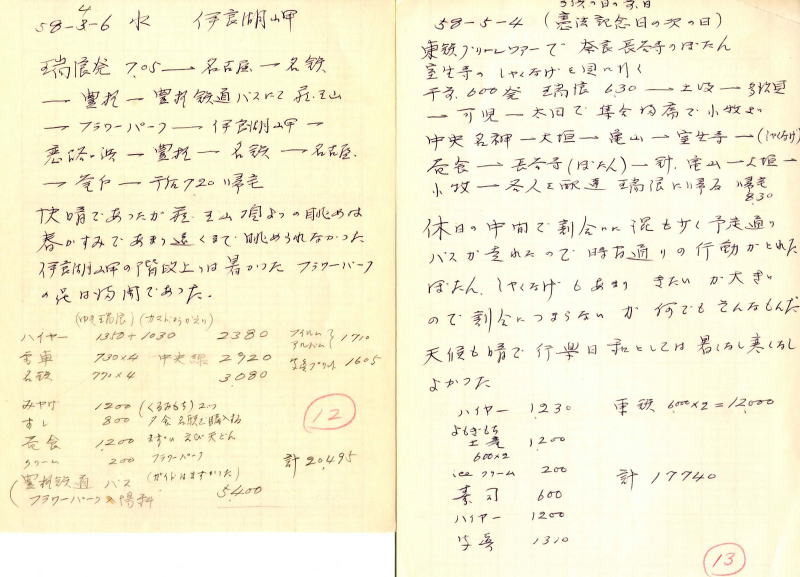 4
58-3-6 水 伊良湖岬
瑞浪発 7.05 → 名古屋 → 名鉄
→ 豊橋 → 豊橋鉄道バスにて 蔵王山
→ フラワーパーク → 伊良湖岬 →
恋路ヶ浜 → 豊橋 → 名鉄 → 名古屋
→ 釜戸 → 7.20 帰宅
快晴であったが 蔵王山頂よりの眺めは
春がすみであまり遠くまで眺められなかった
伊良湖岬の階段上りは暑かった フラワーパーク
の花は満開であった。
(ゆき瑞浪)
ハイヤー 1350+1030 2380 フイルム アルバム } 1710
電車 730×4 中央線 2920 写真プリント 1605
名鉄 770×4 3080
みやげ 1200 (くるみもち) 2つ
すし 800 夕食名駅で購入
昼食 1200 まずい えび天どん
クリーム 200 フラワーパーク 計 20495
豊橋鉄道 バス (ガイドはまずかった)
フラワーパーク入場料 5400
12
58-5-4 (憲法記念日の次の日)
東鉄グリーンツアーで 奈良長谷寺のぼたん
室生寺のしゃくなげを見に行く
600発 瑞浪 630 → 土岐 → 多治見
→ 可児 → 太田で集合 満席で小牧より
中央名神 → 大垣 → 亀山 → 室生寺 → (しゃくなげ)
昼食 → 長谷寺(ぼたん) → 針 亀山 → 大垣 →
小牧 → 各人を配達 瑞浪に帰る 帰宅
8.30
休日の中間で割合に混も少く予定通り
バスが走れたので時間通りの行動がとれた
ぼたん、しゃくなげもあまり きたいが大きい
ので割合につまらないが何でもそんなもんだ
天候も晴で行楽日和としては暑くなし寒くなし
よかった
ハイヤー 1230 東鉄 6000×2=12000
よもぎもち
土産 1200
600×2
iceクリーム 200 計 17740
寿司 600
ハイヤー 1200
写真 1310
13